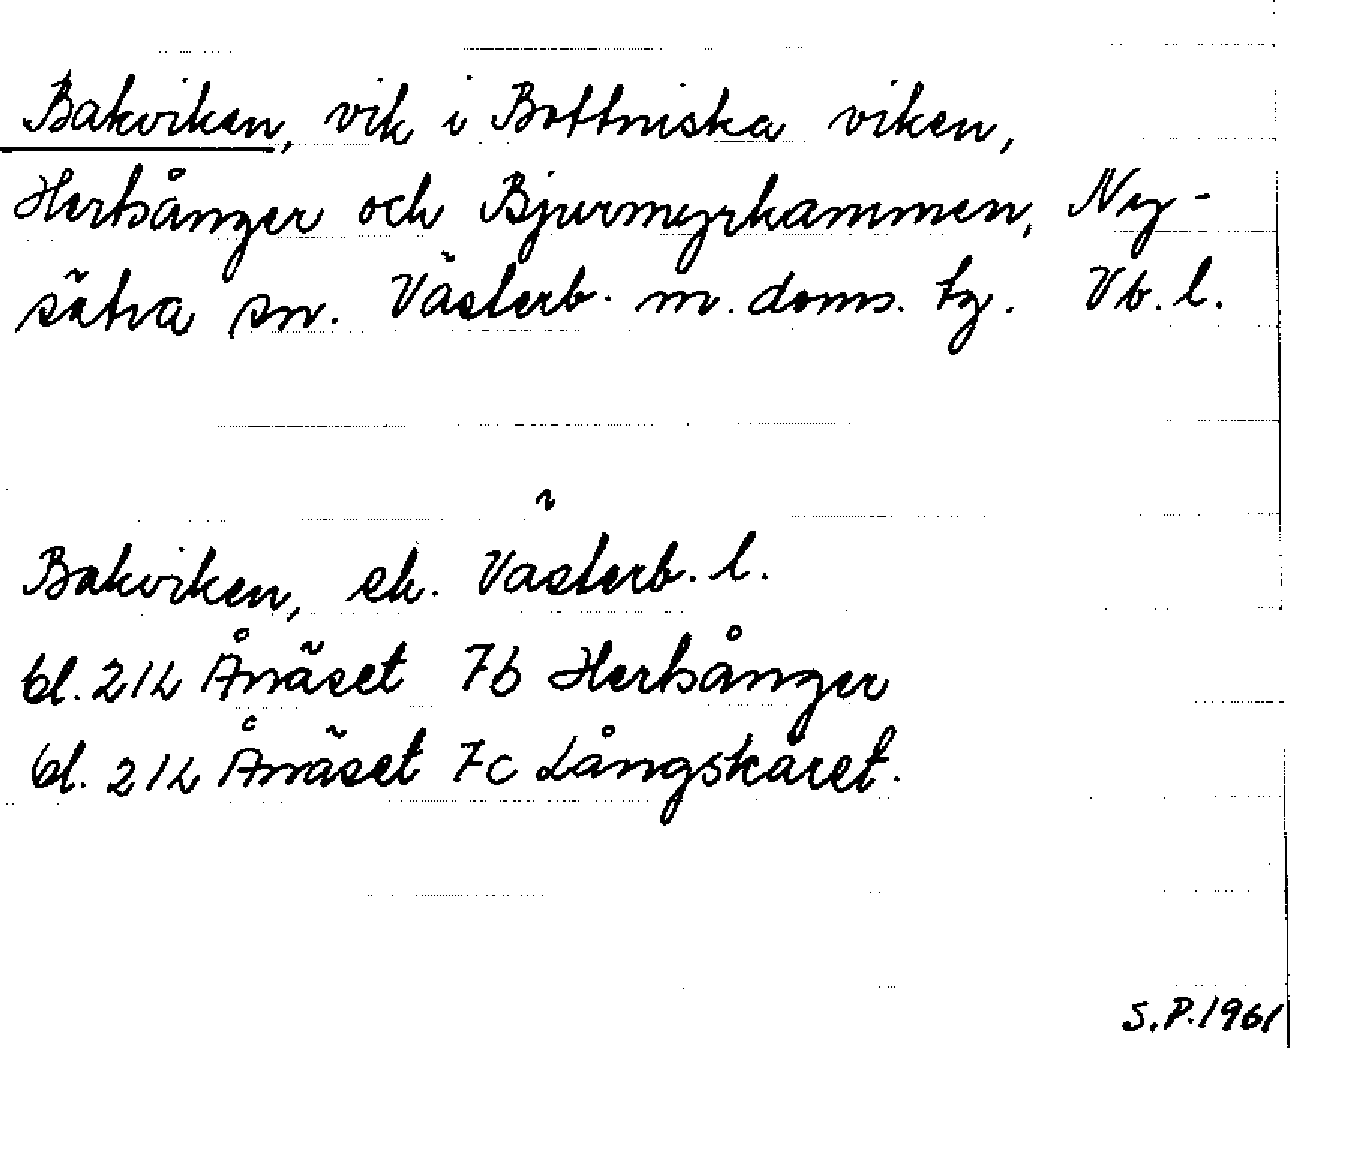 Bakviken, vik i Bottniska viken,
Hertsånger och Bjurmyrkammen, Ny-
sätra sn. Västerb. m. doms. tg. Vb. l.
Bakviken, ek. Västerb. l.
bl. 21L Ånäset 7b Hertsånger
bl. 21L Ånäset 7c Långskäret.
S.P. 1961